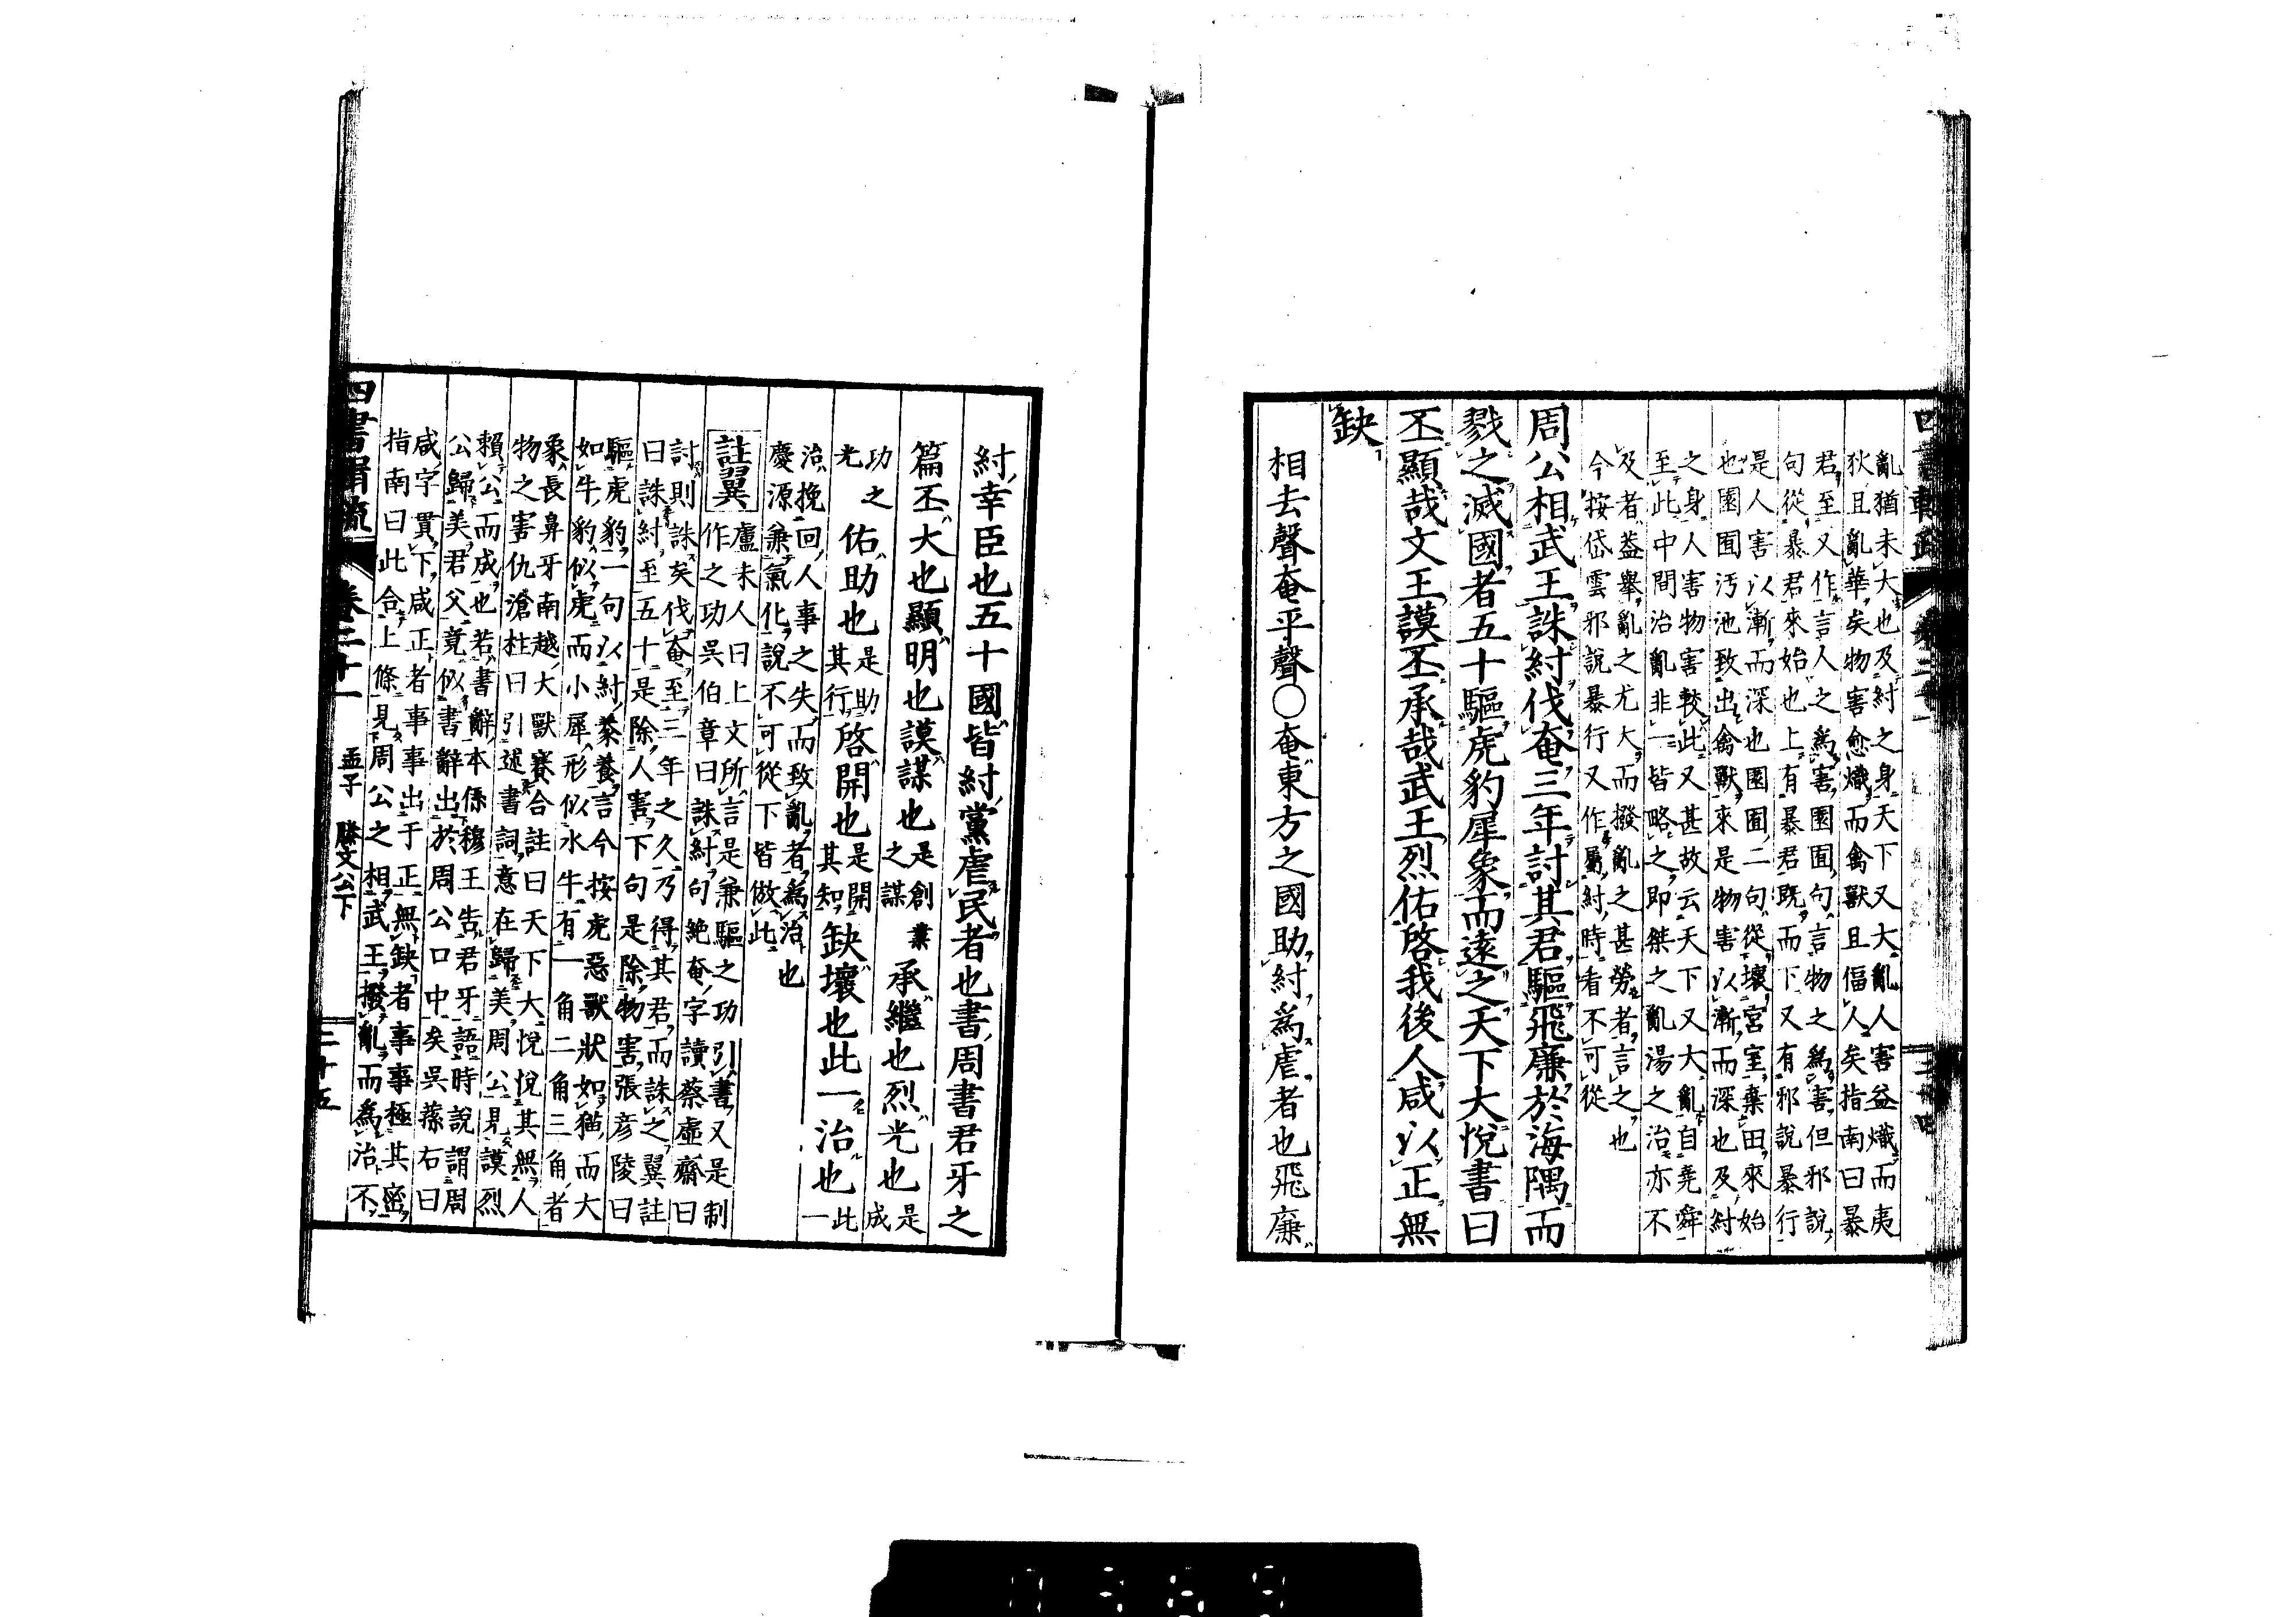 亂猶未大也及紂之身天下又大亂人害益熾而夷
狄且亂華矣物害愈熾而禽獸且偪人矣指南曰暴
君至又作言人之爲害園囿句言物之爲害但邪說
句從暴君來始也上有暴君既而下又有邪說暴行
是人害以漸而深也園囿二句從壞宮室棄田來始
也園囿汚池致出禽獸來是物害以漸而深也及紂
之身人害物害較此又甚故云天下又大亂自堯舜
至此中間治亂非一皆略之即桀之亂湯之治亦不
及者蓋舉亂之尤大而撥亂之甚勞者言之也
今按岱雲邪說暴行又作屬紂時看不可從
周公相武王誅紂伐奄三年討其君驅飛廉於海隅而
戮之滅國者五十驅虎豹犀象而遠之天下大悅書曰
丕顯哉文王謨丕承哉武王烈佑啓我後人咸以正無
缺
相去聲奄平聲○奄東方之國助紂爲虐者也飛廉
紂幸臣也五十國皆紂黨虐民者也書周書君牙之
篇丕大也顯明也謨謀也是創業之謀承繼也烈光也是成
功之光佑助也是助其行啓開也是開其知缺壞也此一治也此一
治挽回人事之失而致亂者爲治也
慶源兼氣化說不可從下皆倣此
註翼 盧未人曰上文所言是兼驅之功引書又是制
作之功吳伯章曰誅紂句絶奄字讀蔡虛齋曰
討則誅矣伐奄至三年之久乃得其君而誅之翼註
曰誅紂至五十是除人害下句是除物害張彦陵曰
驅虎豹一句以紂豢養言今按虎惡獸狀如猫而大
如牛豹似虎而小犀形似水牛有一角二角三角者
象長鼻牙南越大獸賽合註曰天下大悅悅其無人
物之害仇滄柱曰引述書詞意在歸美周公見謨烈
賴公而成也若書辭本係穆王告君牙語時說謂周
公歸美君父竟似書辭出於周公口中矣吳蓀右曰
咸字貫下咸正者事事出于正無缺者事事極其密
指南曰此合上條見周公之相武王撥亂而爲治不
四書 卷二十一 孟子 滕文公下 二十五